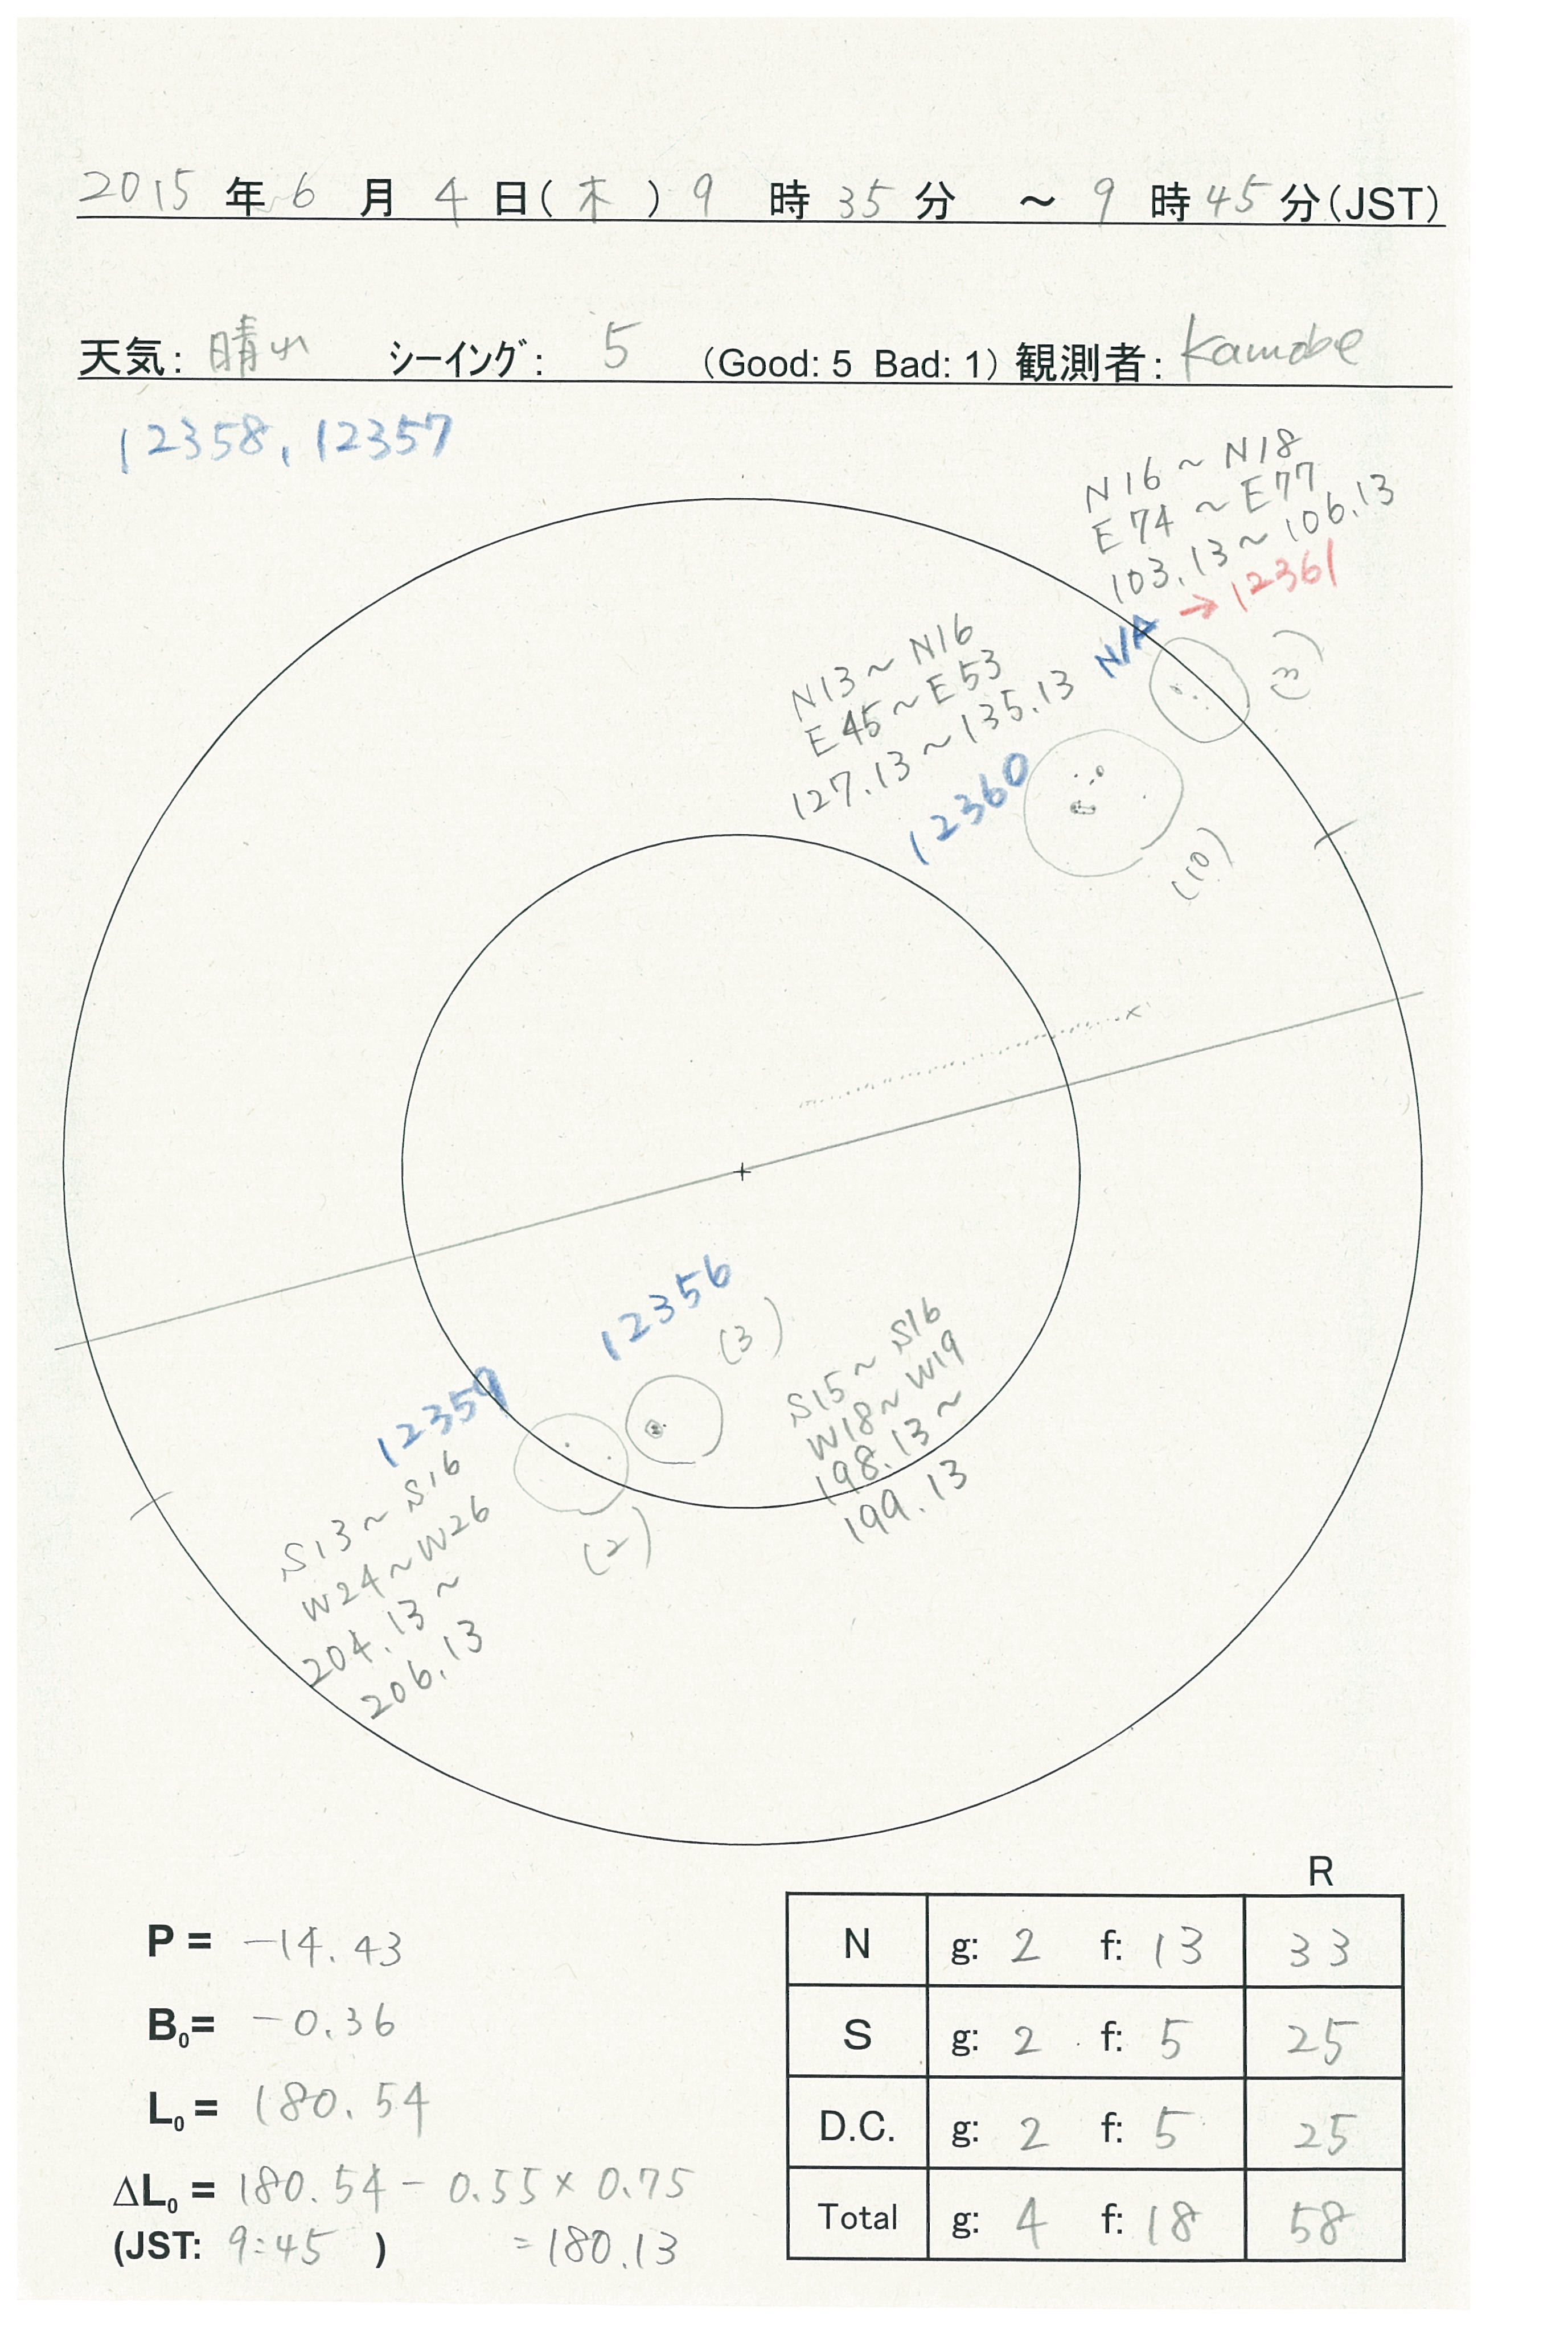 2015 年 6 月 4 日(木) 9 時 35 分 ~ 9 時 45 分(JST)
天気: 晴れ シーイング: 5 (Good: 5 Bad: 1) 観測者: Kamobe
12358, 12357
N16 ~ N18
E74 ~ E77
103.13 ~ 106.13
N/A → 12361
(3)
N13 ~ N16
E45 ~ E53
127.13 ~ 135.13
12360
(10)
12356
(3)
S15 ~ S16
W18 ~ W19
198.13 ~
199.13
12359
S13 ~ S16
W24 ~ W26
204.13 ~
206.13
(2)
P = -14.43
B₀= -0.36
L₀ = 180.54
ΔL₀ = 180.54 - 0.55 × 0.75
(JST: 9:45 ) = 180.13
R
N g: 2 f: 13 33
S g: 2 f: 5 25
D.C. g: 2 f: 5 25
Total g: 4 f: 18 58